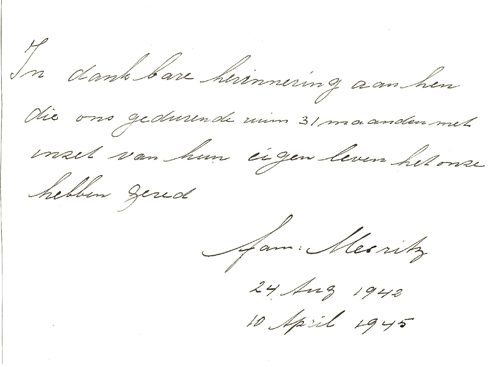 In dankbare herinnering aan hen
die ons gedurende ruim 31 maanden met
inzet van hun eigen leven het onze
hebben gered
fam: Mesritz
24 Aug 1942
10 April 1945